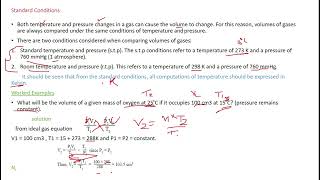 Standard Conditions:
• Both temperature and pressure changes in a gas can cause the volume to change. For this reason, volumes of gases are always compared under the same conditions of temperature and pressure.
• There are two conditions considered when comparing volumes of gases:
1. Standard temperature and pressure (s.t.p). The s.t.p conditions refer to a temperature of 273 K and a pressure of 760 mmHg (1 atmosphere).
2. Room temperature and pressure (r.t.p). This refers to a temperature of 298 K and a pressure of 760 mmHg.
It should be seen that from the standard conditions, all computations of temperature should be expressed in Kelvin.
K
Worked Examples
T₂
x
T₁
• What will be the volume of a given mass of oxygen at 25°C if it occupies 100 cm3 at 15 C? (pressure remains constant).
solution
from ideal gas equation
V₂ = V₁ x T₂
T₁
V1 = 100 cm3 , T1 = 15 + 273 = 288K and P1 = P2 = constant.
since P₁ = P₂